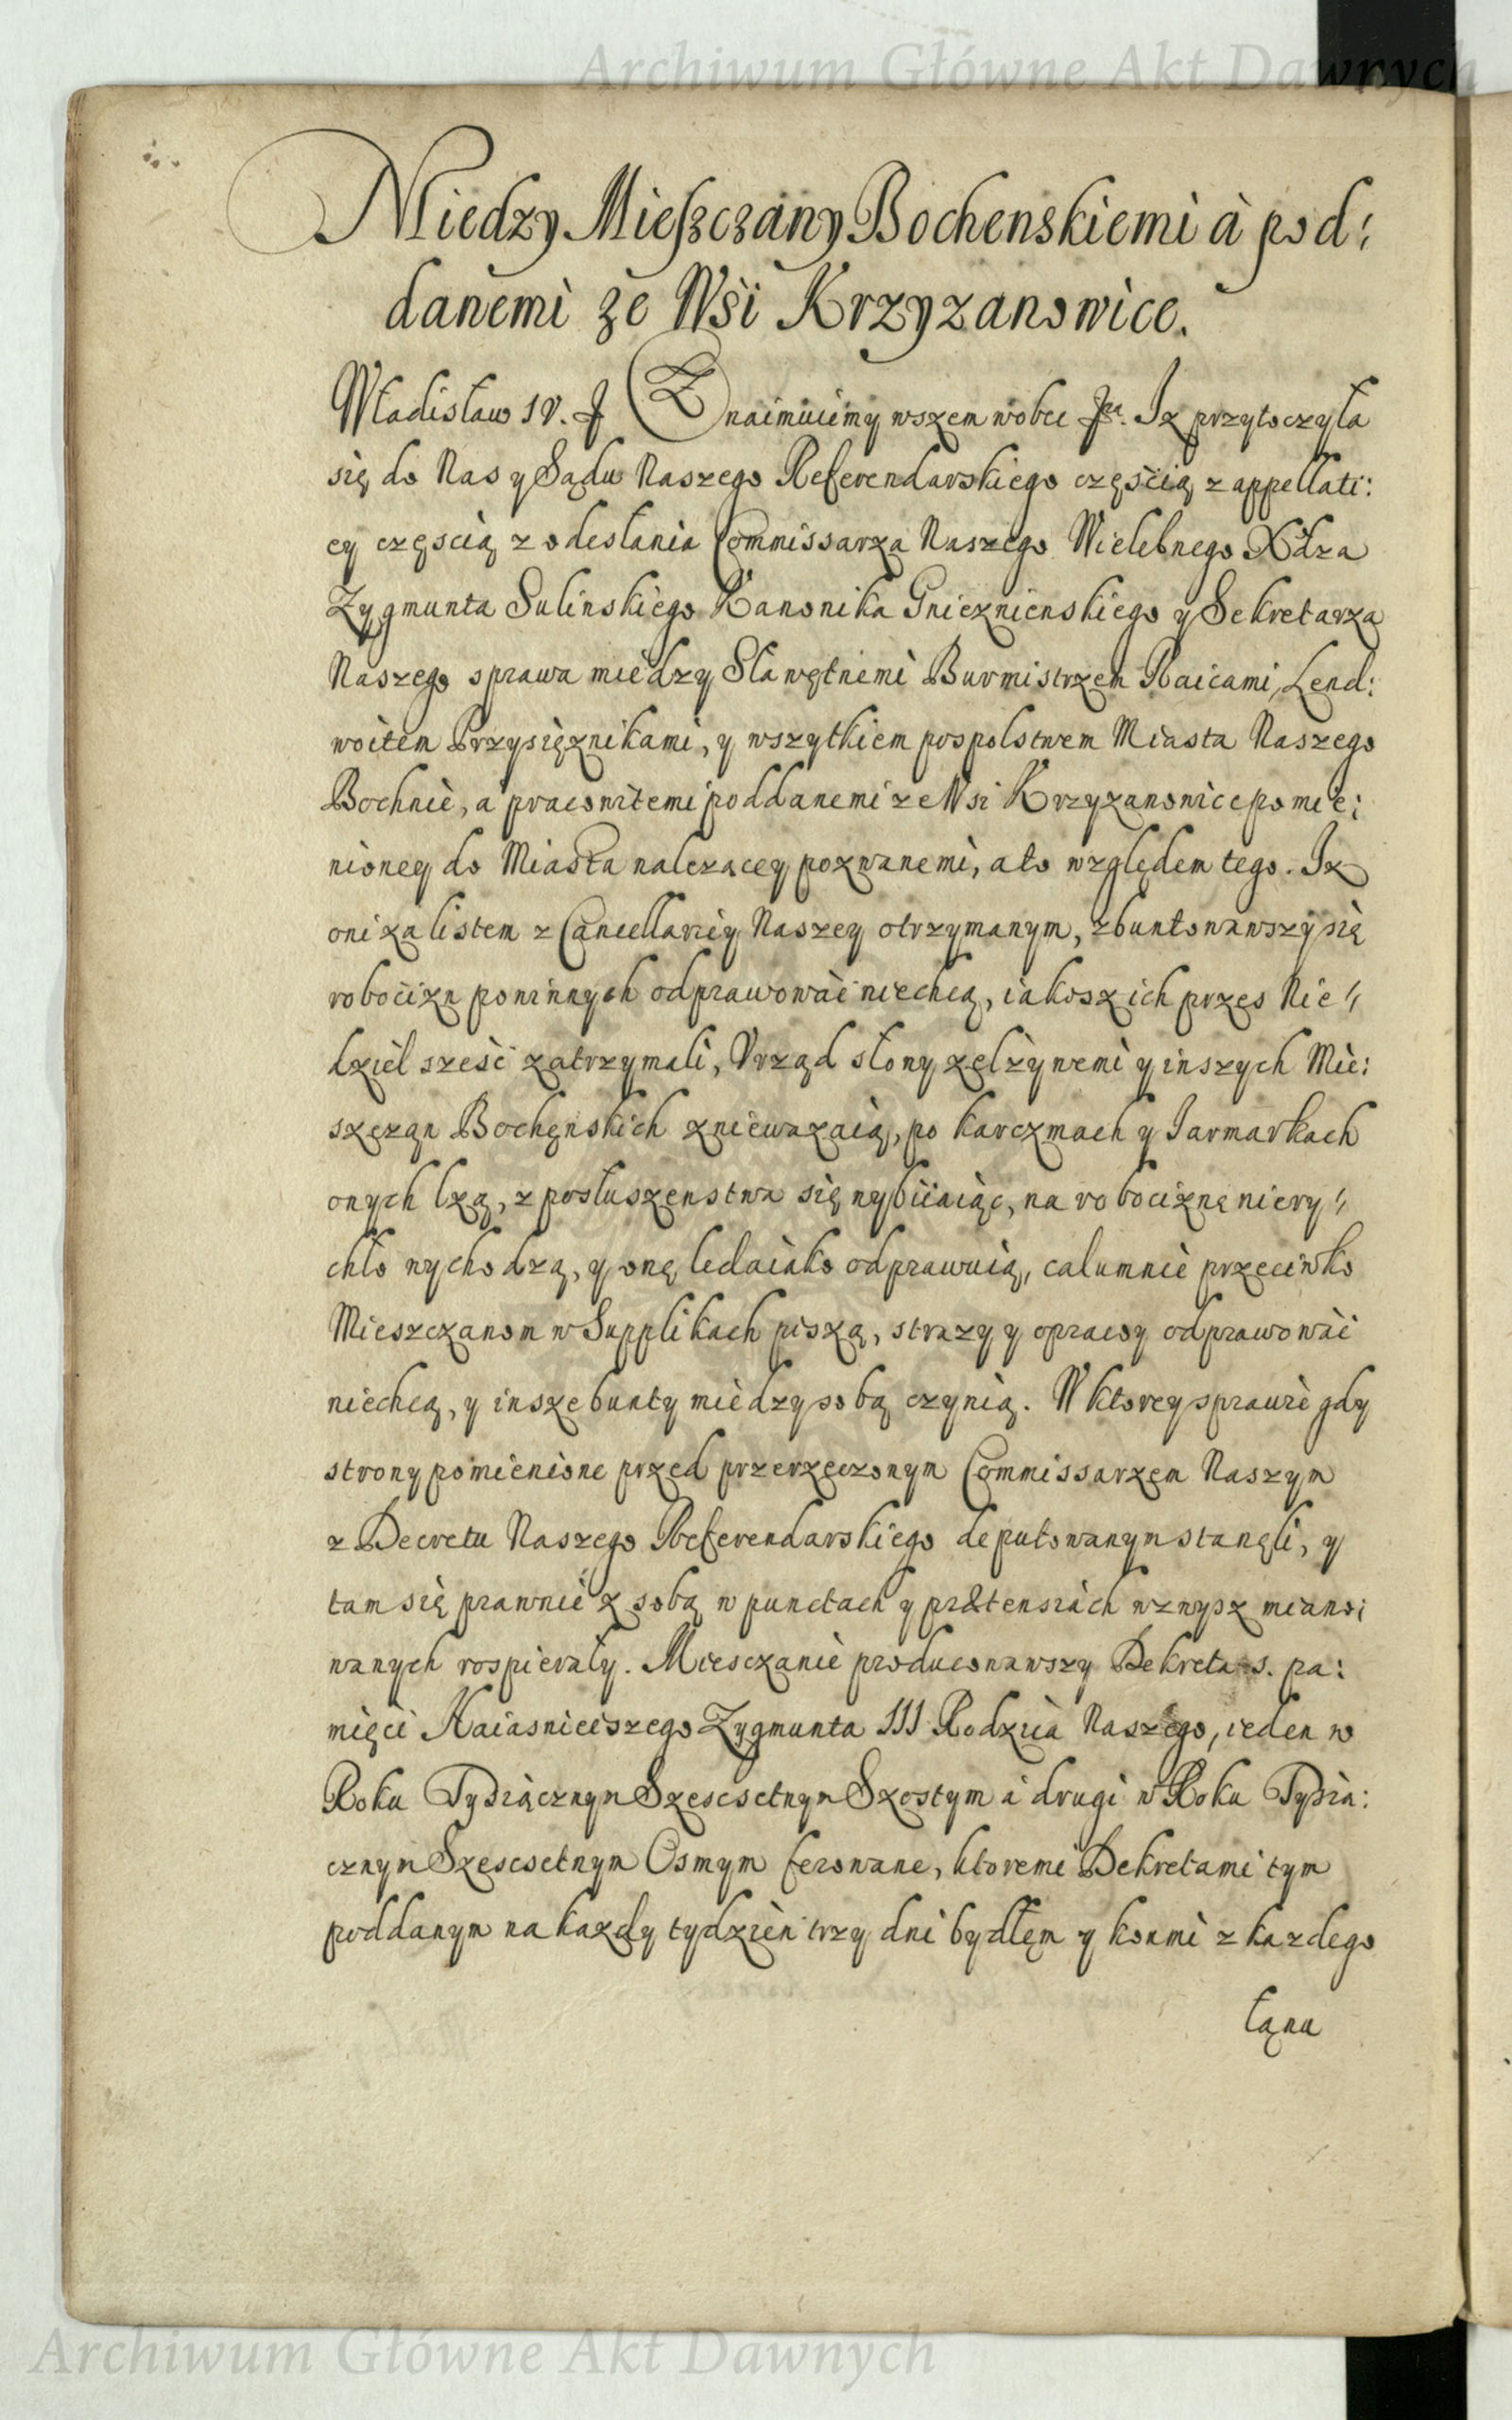 Archiwum Główne Akt Dawnych
Miedzy Mieszczany Bochenskiemi à pod:
danemi ze Wsi Krzyzanowice.
Władisław IV. Znaimuiemy wszem wobec Iż przytoczyła
się do Nas y Sądu Naszego Referendarskiego częścią z appellati:
ey częscią z odesłania Commissarza Naszego Wielebnego Xdza
Zygmunta Sulinskiego Kanonika Gnieznienskiego y Sekretarza
Naszego sprawa miedzy Sławętnemi Burmistrzem Raicami, Lend:
woitem Przysiężnikami, y wszytkiem pospolstwem Miasta Naszego
Bochnie, a pracowitemi poddanemi ze Wsi Krzyzanowice pomie:
nioney do Miasta nalezącey pozwanemi, a to względem tego. Iż
oni za listem z Cancellariey Naszey otrzymanym, zbuntowawszy się
robocizn powinnych odprawować niechcą, iakosz ich przes Nie//
dziel sześć zatrzymali, Vrząd słowy zelżywemi y inszych Mie:
szczan Bochęnskich znieważaią, po karczmach y Iarmarkach
onych lżą, z posłuszenstwa się wybiiaiąc, na robociznę niery//
chło wychodzą, y onę ledaiako odprawuią, calumnie przeciwko
Mieszczanom w Supplikach piszą, strazy y oprawy odprawować
niechcą, y insze bunty miedzy sobą czynią. W ktorey sprawie gdy
strony pomienione przed przerzeczonym Commissarzem Naszym
z Decretu Naszego Referendarskiego deputowanym stanęli, y
tam się prawnie z sobą w punctach y prætensiach wzwysz miano:
wanych rospierały. Miesczanie produkowawszy Dekreta s. pa:
mięci Naiasnieiszego Zygmunta III Rodzica Naszego, ieden w
Roku Tysiącznym Szescsetnym Szostym a drugi w Roku Tysią:
cznym Szescsetnym Osmym ferowane, ktoremi Dekretami tym
poddanym na kazdy tydzien trzy dni bydłęm y konmi z kazdego
łąnu
Archiwum Główne Akt Dawnych